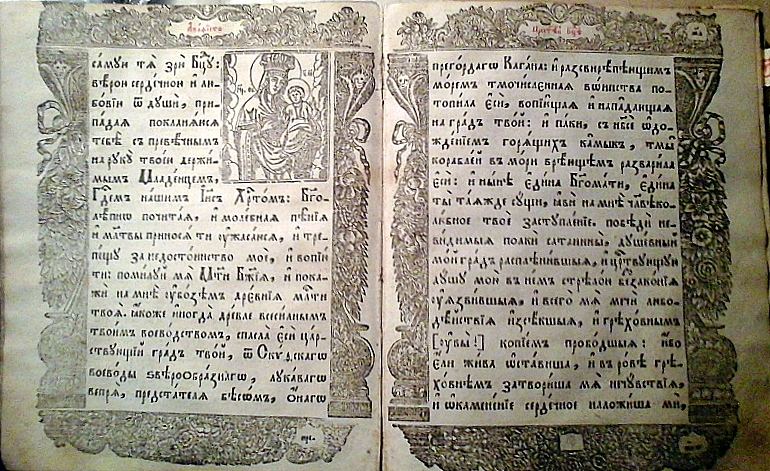 Акаѳіста
самꙋю тѧ зрѧ Бц҃ꙋ:
вѣрою серде́чною и҆ лю-
бо́вїю ѿ дꙋшѝ, при-
па́даѧ покланѧ́юсѧ
тебѣ̀ съ превѣ́чнымъ
на рꙋкꙋ̀ твое́ю держи-
мымъ Младе́нцемъ,
Гдⷭ҇емъ на́шимъ І҆и҃съ Хрⷭ҇то́мъ: Бг҃о-
лѣ́пнѡ почита́ѧ, и҆ моле́бнаѧ пѣ́нїѧ
и҆ мл҃твы приносѧ̀ ти ᲂу҆жаса́юсѧ, и҆ тре-
пе́щꙋ за недосто́инство моѐ, и҆ вопїю̀
ти: поми́лꙋй мѧ̀ Мт҃и Бж҃їѧ, и҆ пока-
жѝ на мнѣ̀ ᲂу҆бо́зѣмъ дре́внїѧ млⷭ҇ти
твоѧ̀. ꙗ҆́коже и҆ногда̀ дре́вле всеси́льнымъ
твои́мъ воево́дствомъ, спасла̀ є҆сѝ ца́р-
ствꙋющїй гра́дъ тво́й, ѿ Ски́ѳскагѡ
воево́ды ѕвѣроѻбра́знагѡ, лꙋка́вагѡ
ве́прѧ, предста́телѧ бѣсѡ́мъ, ѻ҆́нагѡ
Прⷭ҇тѣй Бцⷣѣ
прего́рдагѡ Кага́на: и҆ разсвирѣпѣ́вшимъ
мо́ремъ тмочи́сленнаѧ вѡ́инства по-
топи́ла є҆сѝ, вопїю́щаѧ и҆ напа́дающаѧ
на гра́дъ тво́й: и҆ па́ки, съ нб҃сѐ ѡ҆дож-
жде́нїемъ горѧ́щихъ ка́мыкъ, тмы̀
корабле́й въ мо́ри врѣ́ющемъ развари́ла
є҆сѝ: и҆ ны́нѣ є҆ди́на Бг҃ома́ти, є҆ди́на
ты̀ та́ѧжде сꙋ́щи, ꙗ҆вѝ на мнѣ̀ чл҃вѣко-
лю́бное твоѐ застꙋпле́нїе. побѣдѝ не-
ви́димыѧ полкѝ сатанины̀, дꙋше́вный
мо́й гра́дъ распленѝвшыѧ, и҆ црⷭ҇твꙋющꙋю
дꙋ́шꙋ мою̀ въ не́мъ стрѣло́ю беззако́нїѧ
ᲂу҆ѧзви́вшыѧ, и҆ всего́ мѧ мече́мъ любо-
дѣ́йствїѧ и҆зсѣ́кшыѧ, и҆ грѣхо́внымъ
[ᲂу҆вы̀!] копїе́мъ пробо́дшыѧ: и҆́бо
є҆лѝ жи́ва ѡ҆ста́виша, и҆ въ ро́вѣ грѣ-
хо́внѣмъ затвори́ша мѧ̀ нечꙋ́вствїѧ,
и҆ ѡ҆камене́нїе серде́чное наложи́ша мѝ,